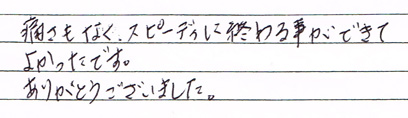 痛さもなく、スピーディに終わる事ができて
よかったです。
ありがとうございました。